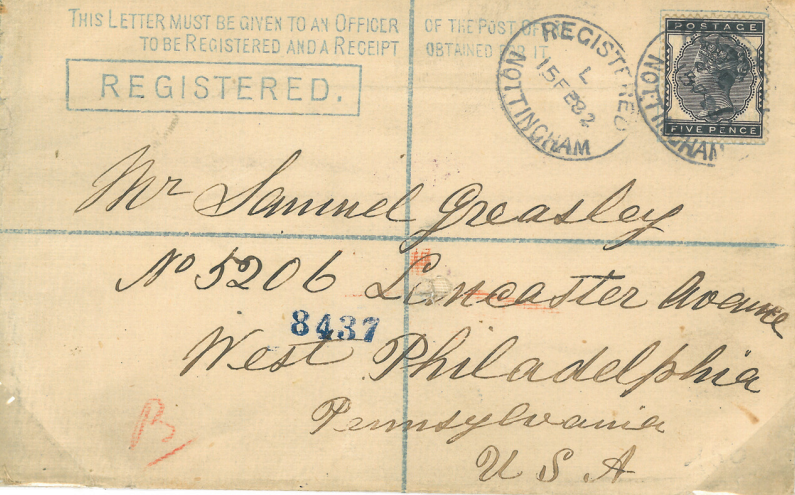 THIS LETTER MUST BE GIVEN TO AN OFFICER OF THE POST OF
TO BE REGISTERED AND A RECEIPT OBTAINED FOR IT.
REGISTERED.
REGISTERED
L
15 FE 82
NOTTINGHAM
NOTTINGHAM
POSTAGE
FIVE PENCE
Mr Samuel Greasley
No 5206 Lancaster Avenue
8437
West Philadelphia
Pennsylvania
U S A
B